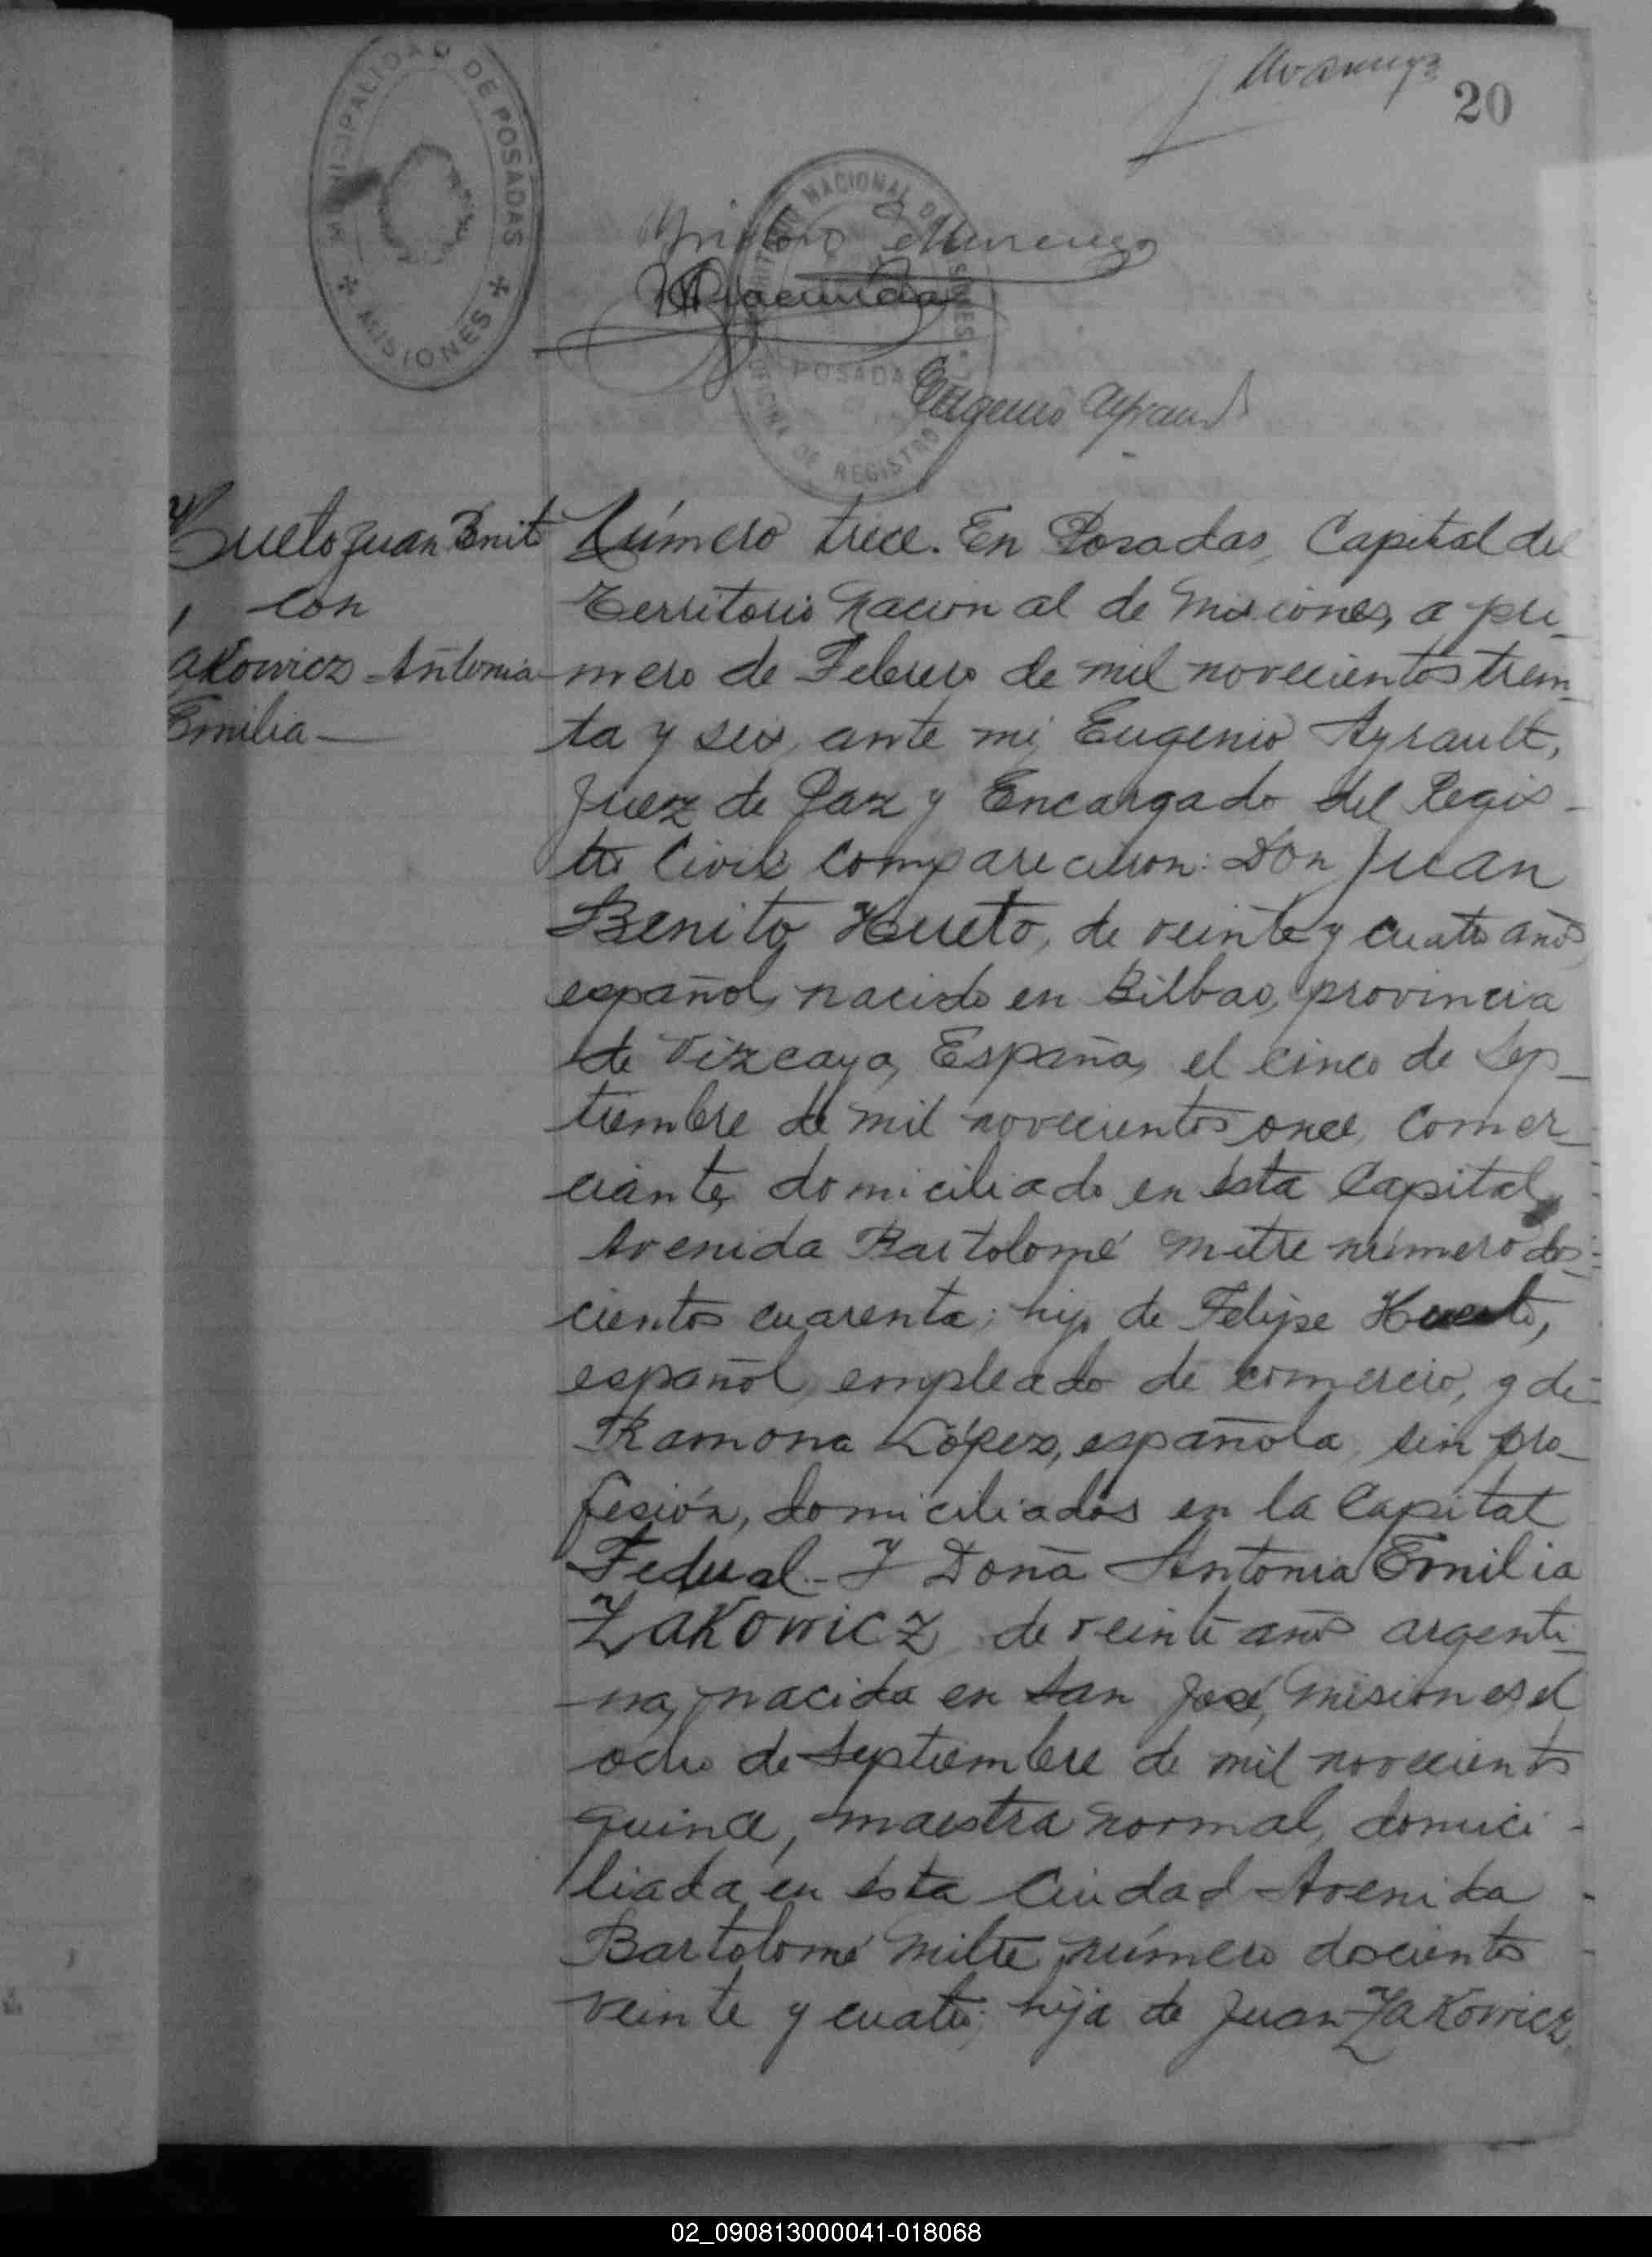 20
MUNICIPALIDAD DE POSADAS
MISIONES
NACIONAL DE MISIONES
POSADAS
OFICINA DE REGISTRO
Hueto Juan Benit
con
akowicz Antonia
Emilia
Número trece. En Posadas, Capital del
Territorio Nacional de Misiones, a pri-
mero de Febrero de mil novecientos trein-
ta y seis, ante mi, Eugenio Ayrault,
Juez de Paz y Encargado del Regis-
tro Civil comparecieron: Don Juan
Benito Hueto, de veinte y cuatro años,
español, nacido en Bilbao, provincia
de Vizcaya, España, el cinco de Sep-
tiembre de mil novecientos once, comer-
ciante, domiciliado en ésta Capital,
Avenida Bartolomé Mitre número dos-
cientos cuarenta; hijo de Felipe Hueto,
español, empleado de comercio, y de
Ramona López, española, sin pro-
fesión, domiciliados en la Capital
Federal.- Y Doña Antonia Emilia
Zakowicz, de veinte años, argenti-
na, nacida en San José, Misiones, el
ocho de Septiembre de mil novecientos
quince, maestra normal, domici-
liada en ésta Ciudad Avenida
Bartolomé Mitre, número doscientos
veinte y cuatro; hija de Juan Zakowicz,
02_090813000041-018068